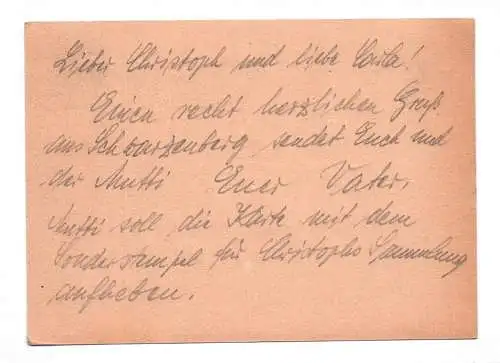 Lieber Christoph und liebe Carla!
Einen recht herzlichen Gruß
aus Schwarzenberg sendet Euch und
der Mutti Euer Vater.
Mutti soll die Karte mit dem
Sonderstempel für Christophs Sammlung
aufheben.